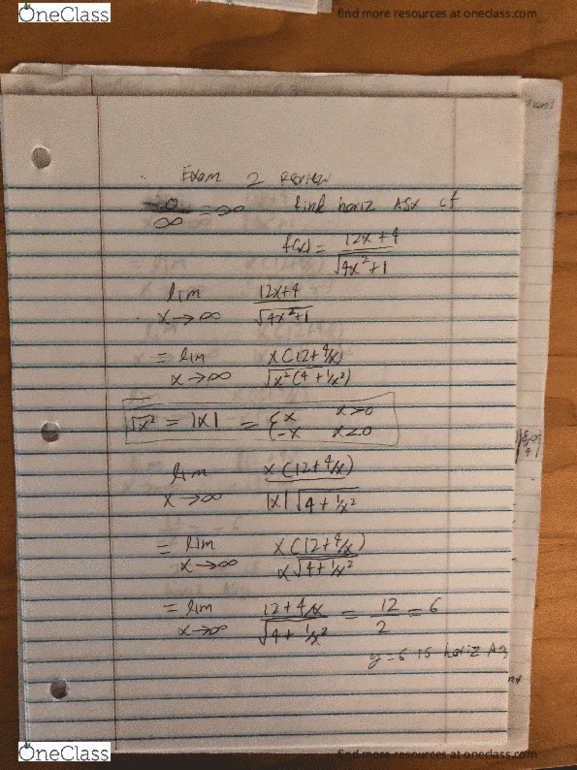 OneClass find more resources at oneclass.com
Exam 2 Review
0/∞ = ∞ find horiz Asx of
f(x) = (12x+4)/√(4x²+1)
lim x→∞ (12x+4)/√(4x²+1)
= lim x→∞ x(12+4/x)/√(x²(4+1/x²))
√x² = |x| = { x x>0
-x x<0
lim x→∞ x(12+4/x)/|x|√(4+1/x²)
= lim x→∞ x(12+4/x)/x√(4+1/x²)
= lim x→∞ (12+4/x)/√(4+1/x²) = 12/2 = 6
y=6 is horiz As
OneClass find more resources at oneclass.com